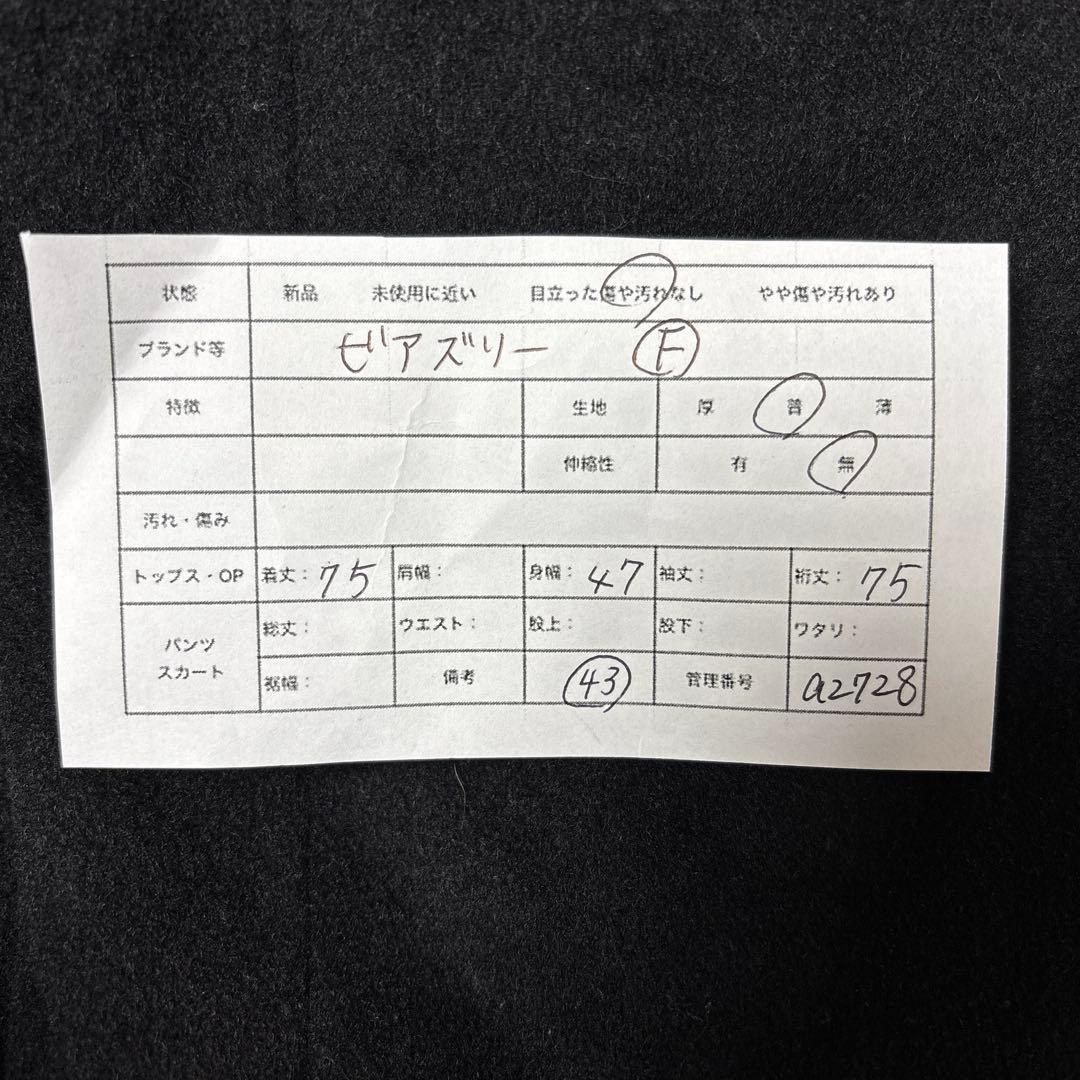 状態 新品 未使用に近い 目立った傷や汚れなし やや傷や汚れあり
ブランド等 ビアズリー F
特徴 生地 厚 普 薄
伸縮性 有 無
汚れ・傷み
トップス・OP 着丈：75 肩幅： 身幅：47 袖丈： 裄丈：75
パンツ スカート 総丈： ウエスト： 股上： 股下： ワタリ：
裾幅： 備考 43 管理番号 a2728